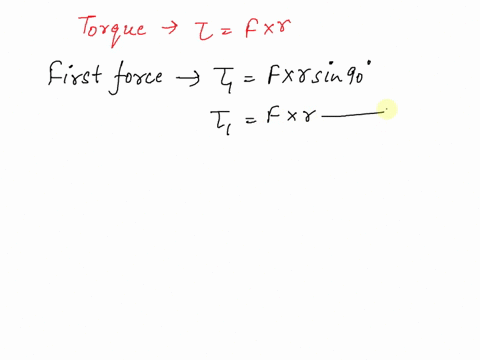 Torque → τ = F×r
First force → τ₁ = F×r sin 90°
τ₁ = F×r —